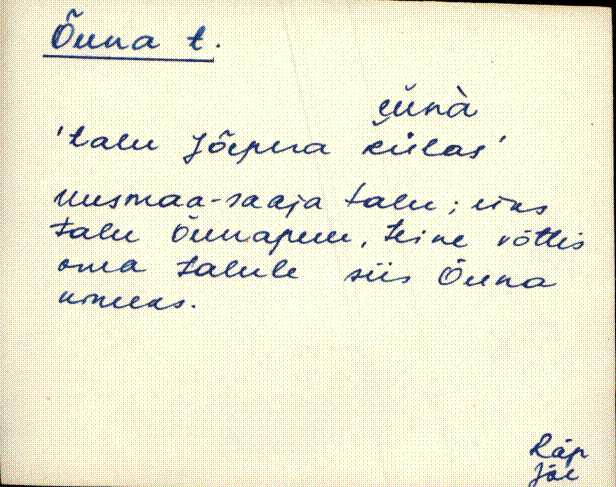 Õuna t.
'talu Jõepera külas'
uusmaa-saaja talu; üks
talu Õunapuu, teine võttis
oma talule siis Õuna
nimeks.
Räp
Jõe